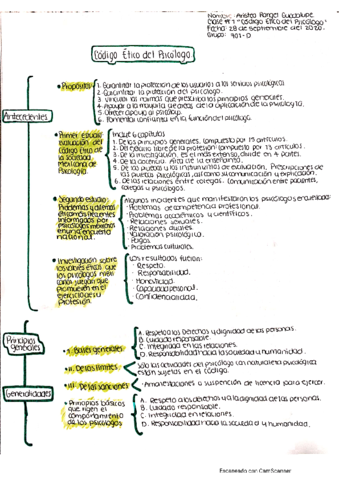 Nombre: Aristeo Rangel Guadalupe.
Clase #1 "Código Ético del Psicólogo"
Fecha: 28 de septiembre del 2020.
Grupo: 901-D
Código Ético del Psicólogo
Antecedentes
Propósitos
1. Garantizar la protección de los usuarios a los servicios psicológicos.
2. Garantizar la protección del psicólogo.
3. Vincular las normas que prescriben los principios generales.
4. Apoyar a la mayoría de áreas de la aplicación de la psicología.
5. Ofrecer apoyo al psicólogo.
6. Fomentar confianza en la función del psicólogo.
Primer estudio
evaluación del
Código Ético de
la Sociedad
Mexicana de
Psicología.
Incluye 6 capítulos
1. De los principios generales. Compuesto por 15 artículos.
2. Del ejercicio libre de la profesión compuesto por 13 artículos.
3. De la investigación. Es el más extenso, divide en 4 partes.
4. De la docencia. Área de la enseñanza.
5. De las pruebas y los instrumentos de evaluación.
las pruebas psicológicas, así como su comunicación y explicación.
6. De las relaciones entre colegas. Comunicación entre pacientes,
colegas y psicólogos.
Segundo estudio:
Problemas y dilemas
éticos más frecuentes
informados por
psicólogos mexicanos
en una encuesta
nacional.
Algunos incidentes que manifestaron los psicólogos encuestados:
- Problemas de competencia profesional.
- Problemas académicos y científicos.
- Relaciones sexuales.
- Relaciones duales.
- Valoración psicológica.
- Pagos.
- Problemas culturales.
Investigación sobre
los valores éticos que
los psicólogos mexi-
canos juzgan que
promueven en el
ejercicio de su
Profesión
Los resultados fueron:
- Respeto.
- Responsabilidad.
- Honestidad.
- Capacidad personal.
- Confidencialidad.
Principios
generales
I. Bases generales
A. Respeto a los Derechos y dignidad de las personas.
B. Cuidado responsable.
C. Integridad en las relaciones.
D. Responsabilidad hacia la sociedad y humanidad.
II. De los límites
Solo las actividades del psicólogo con naturaleza psicológica
están sujetas en el código.
III. De las sanciones
- Amonestaciones o suspensión de licencia para ejercer.
Generalidades
Principios básicos
que rigen el
comportamiento
de los psicólogos
A. Respeto a los derechos y a la dignidad de las personas.
B. Cuidado responsable.
C. Integridad en relaciones.
D. Responsabilidad hacia la sociedad y humanidad.
Escaneado con CamScanner